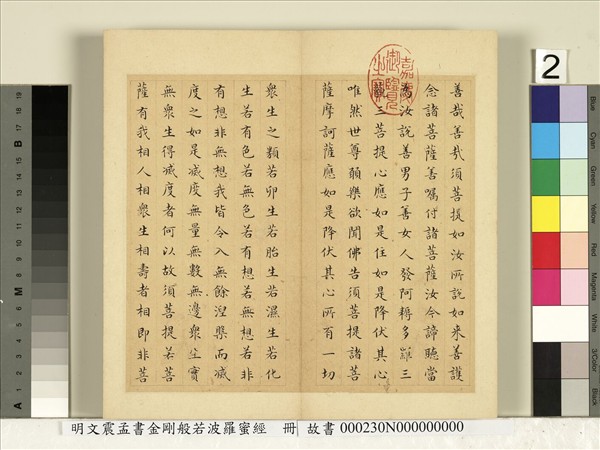 善哉善哉須菩提如汝所說如來善護
念諸菩薩善囑付諸菩薩汝今諦聽當
為汝說善男子善女人發阿耨多羅三
藐三菩提心應如是住如是降伏其心
唯然世尊願樂欲聞佛告須菩提諸菩
薩摩訶薩應如是降伏其心所有一切
眾生之類若卵生若胎生若濕生若化
生若有色若無色若有想若無想若非
有想非無想我皆令入無餘涅槃而滅
度之如是滅度無量無數無邊眾生實
無眾生得滅度者何以故須菩提若菩
薩有我相人相眾生相壽者相即非菩
嘉慶御覽之寶
2
Blue
Cyan
Green
Yellow
Red
Magenta
White
3/Color
Black
A
1
2
3
4
5
6
M
8
9
10
11
12
13
14
15
B
17
18
19
明文震孟書金剛般若波羅蜜經 冊 故書 000230N000000000